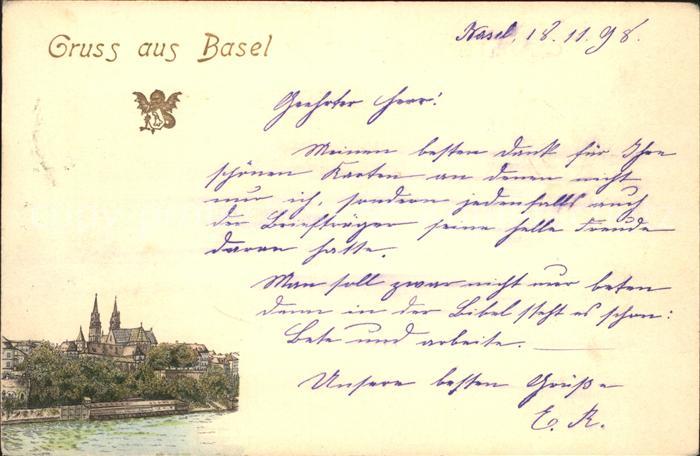 Gruss aus Basel
Basel, 18.11.98.
Geehrter Herr!
Meinen besten Dank für Ihre
schönen Karten an denen nicht
nur ich, sondern jedenfalls auch
der Briefträger seine helle Freude
daran hatte.
Man soll zwar nicht nur beten
denn in der Bibel steht es schon:
Bete und arbeite.
Unsere besten Grüße
E. R.